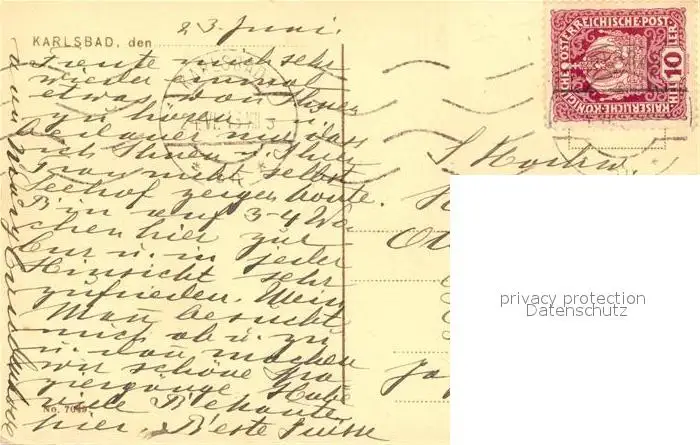 KARLSBAD, den 23 Juni.
Freute mich sehr
wieder einmal
etwas von Ihnen
zu hören u.
bedaure nur dass
ich Ihnen u. Ihrer
Frau nicht selbst
Seehof zeigen konnte.
Bin auf 3-4 Wo-
chen hier zur
Cur u. in jeder
Hinsicht sehr
zufrieden. Mein
Mann besucht
mich ab u. zu
u. dann machen
wir schöne Spa
ziergänge. Habe
viele Bekannte
hier. Beste Grüsse
No. 7049
KAISERLICHE KÖNIGLICHE ÖSTERREICHISCHE POST
10
HELLER
S. Hochw.
privacy protection
Datenschutz